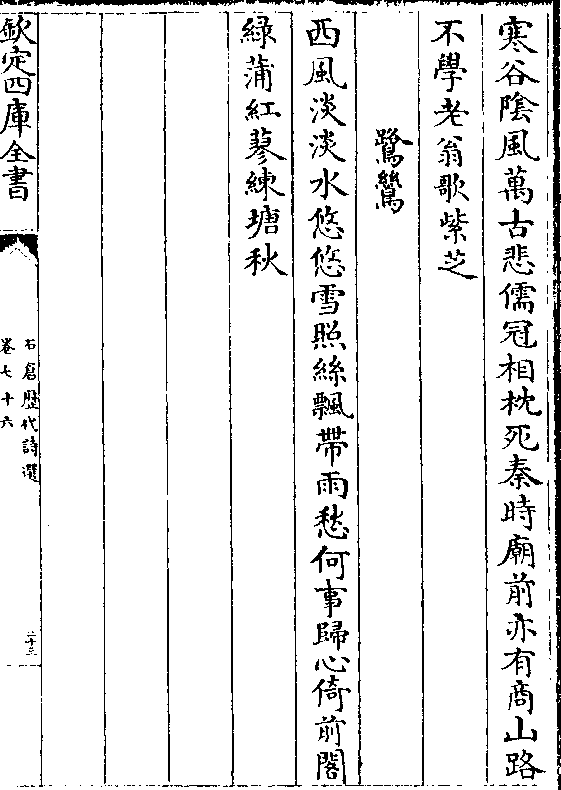 寒谷陰風萬古悲儒冠相枕死秦時廟前亦有商山路
不學老翁歌紫芝
鷺鷥
西風淡淡水悠悠雪照絲飄帶雨愁何事歸心倚前閣
緑蒲紅蓼練塘秋
欽定四庫全書
石倉歷代詩選
卷七十六
二十三